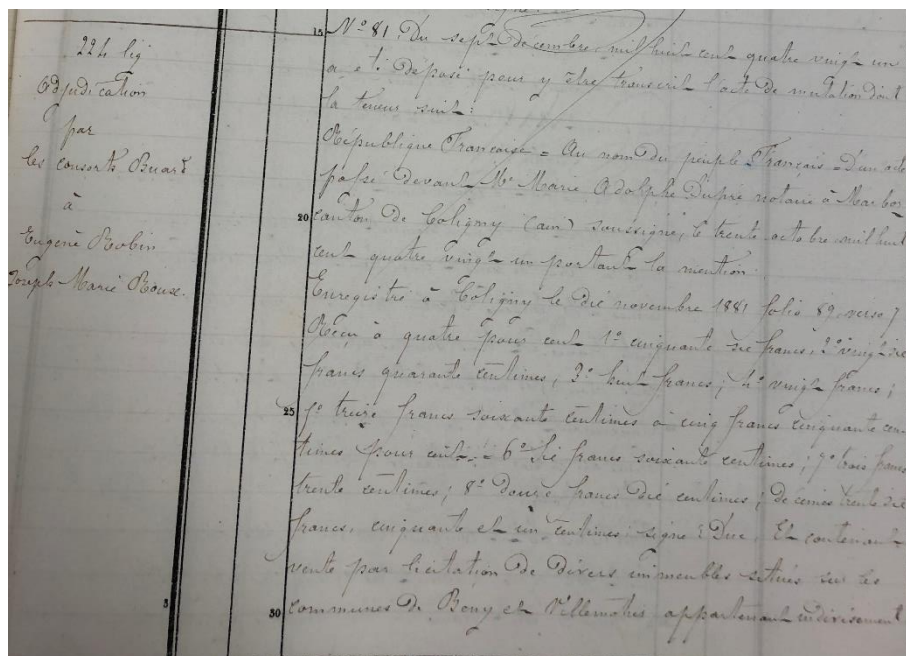 224 lig
Adjudication
par
les consorts Buard
à
Eugène Robin
Joseph Marie Rouse.
5
15 N° 81. Du sept décembre mil huit cent quatre vingt un
a été déposé pour y être transcrit l'acte de mutation dont
la teneur suit:
République Française = Au nom du peuple Français = D'un acte
passé devant Me Marie Adolphe Dupré notaire à Marboz
20 canton de Coligny (ain) soussigné, le trente octobre mil huit
cent quatre vingt un portant la mention.
Enregistré à Coligny le dix novembre 1881 folio 89 verso 7
Reçu à quatre pour cent 1° cinquante six francs, 2° vingt six
francs quarante centimes; 3° huit francs; 4° vingt francs;
25 5° treize francs soixante centimes à cinq francs cinquante cen-
times pour cent = 6° Six francs soixante centimes; 7° trois francs
trente centimes; 8° Douze francs dix centimes; decimes trente six
francs, cinquante et un centimes signé: Duc. Et contenant
vente par licitation de divers immeubles situés sur les
30 communes de Beny et Villemotier appartenant indivisement